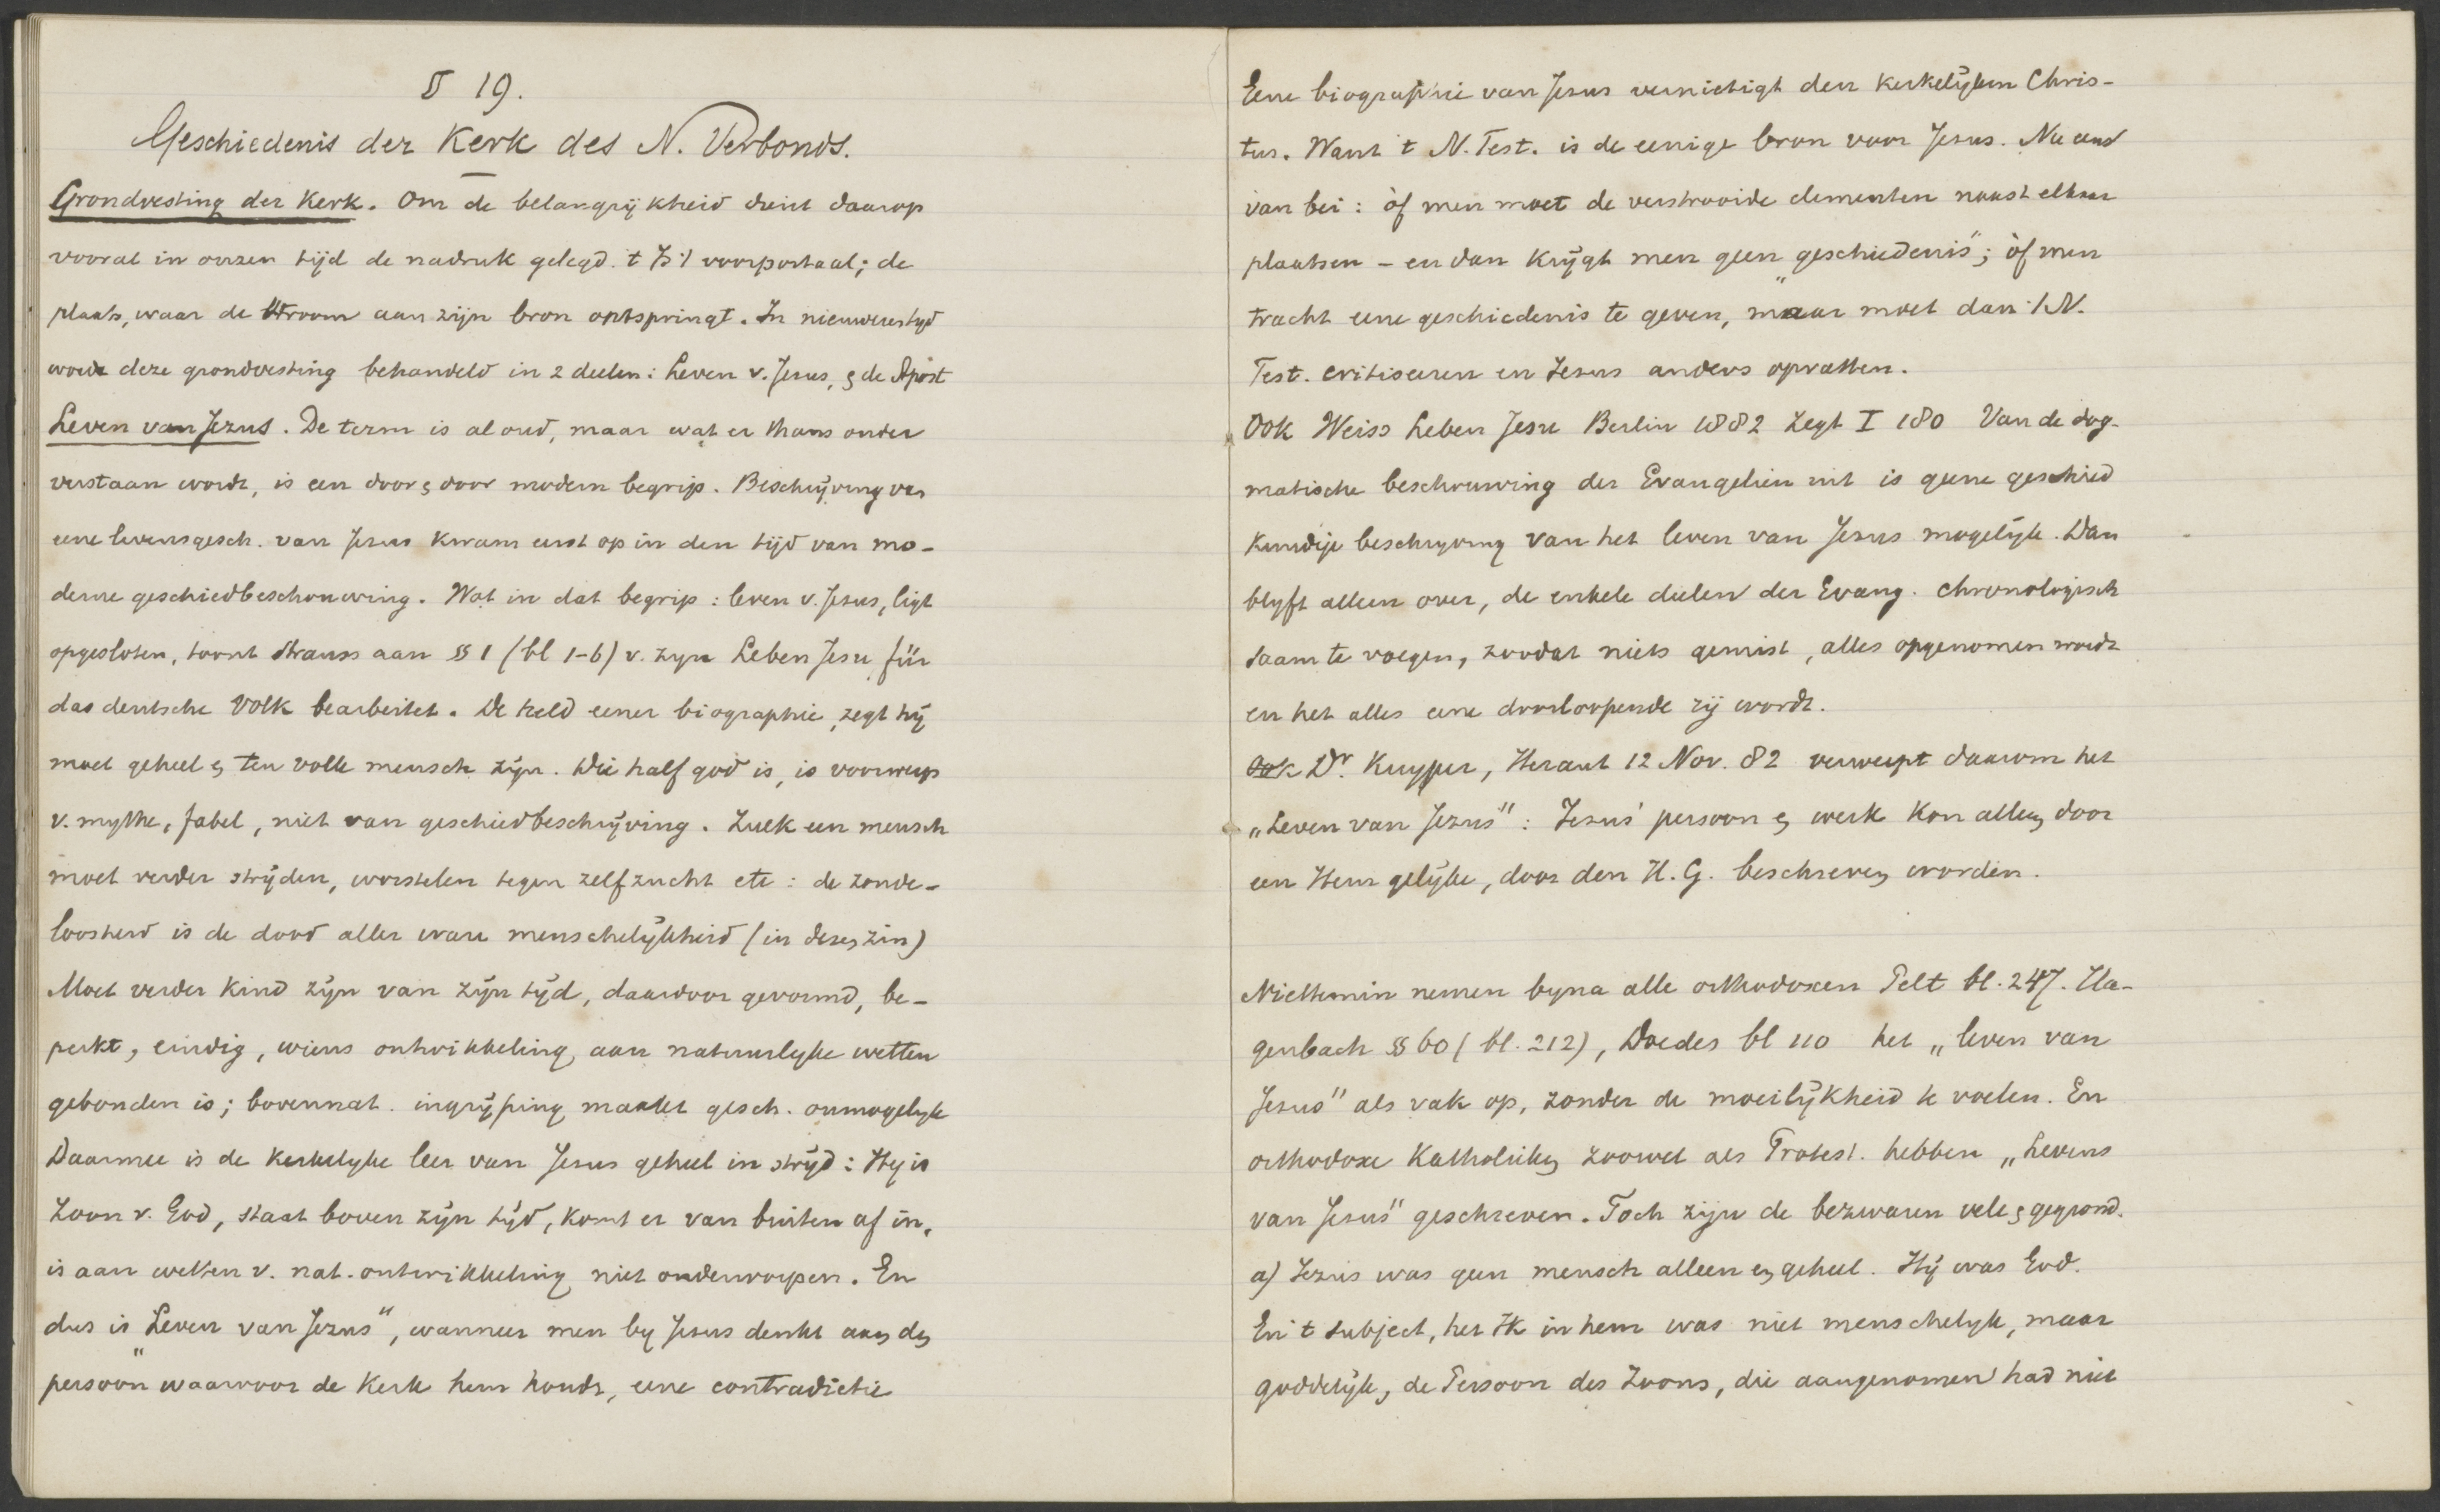 § 19.
Geschiedenis der Kerk des N. Verbonds.
Grondvesting der Kerk. Om de belangrijkheid dient daarop
vooral in onzen tijd de nadruk gelegd. 't Is 't voorportaal; de
plaats, waar de stroom aan zijn bron ontspringt. In nieuweren tyd
wordt deze grondvesting behandeld in 2 deelen: Leven v. Jesus, & de Apost
Leven van Jezus. De term is al oud, maar wat er thans onder
verstaan wordt, is een door & door modern begrip. Beschrijving van
eene levensgesch. van Jesus kwam eerst op in den tijd van mo-
derne geschiedbeschouwing. Wat in dat begrip: leven v. Jesus, ligt
opgesloten, toont Strauss aan §§ 1 (bl 1-6) v. zyn Leben Jesu für
das deutsche Volk bearbeitet. De held eener biographie, zegt hij
moet geheel en ten volle mensch zijn. Wie half god is, is voorwerp
v. mythe, fabel, niet van geschiedbeschrijving. Zulk een mensch
moet verder strijden, worstelen tegen zelfzucht etc: de zonde-
loosheid is de dood aller ware menschelykheid (in dezen zin)
Moet verder kind zijn van zijn tijd, daardoor gevormd, be-
perkt, eindig, wiens ontwikkeling aan natuurlyke wetten
gebonden is; bovennat. ingrijping maakt gesch. onmogelyk
Daarmee is de kerkelyke leer van Jesus geheel in strijd: Hy is
Zoon v. God, staat boven zijn tijd, komt er van buiten af in,
is aan wetten v. nat. ontwikkeling niet onderworpen. En
dus is „Leven van Jezus", wanneer men by Jesus denkt aan den
persoon waarvoor de Kerk hem houdt, eene contradictie
Eene biographie van Jesus vernietigt den kerkelijken Chris-
tus. Want 't N. Test. is de eenige bron voor Jesus. Nu een
van bei: òf men moet de verstrooide elementen naast elkaar
plaatsen - en dan krijgt men geen „geschiedenis"; òf men
tracht eene geschiedenis te geven, maar moet dan 't N.
Test. critiseeren en Jesus anders opvatten.
Ook Weiss Leben Jesu Berlin 1882 zegt I 180 Van de dog-
matische beschouwing der Evangeliën uit is geene geschied
kundige beschryving van het leven van Jesus mogelijk. Dan
blyft alleen over, de enkele deelen der Evang. chronologisch
saam te voegen, zoodat niets gemist, alles opgenomen wordt
en het alles eene doorloopende zij wordt.
Ook Dr. Kuyper, Heraut 12 Nov. 82 verwerpt daarom het
„Leven van Jezus": Jezus' persoon en werk kon alleen door
een Hem gelijke, door den H. G. beschreven worden.
Niettemin nemen byna alle orthodoxen Pelt bl. 247. Ha-
genbach §§ 60 (bl. 212), Doedes bl 110 het „leven van
Jesus" als vak op, zonder de moeilijkheid te voelen. En
orthodoxe Katholieken zoowel als Protest. hebben „Levens
van Jesus" geschreven. Toch zijn de bezwaren vele & gegrond.
a) Jezus was geen mensch alleen en geheel. Hij was God.
En 't subject, het Ik in hem was niet menschelyk, maar
goddelijk, de Persoon des Zoons, die aangenomen had niet